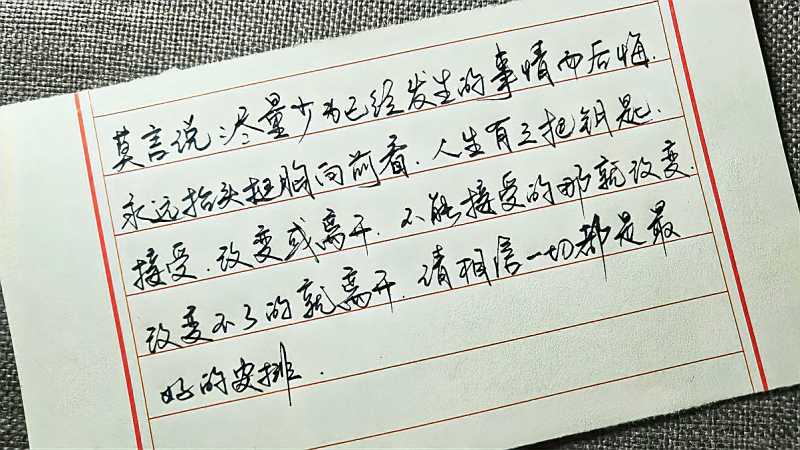 莫言说：尽量少为已经发生的事情而后悔.
永远抬头挺胸向前看.人生有三把钥匙.
接受.改变或离开.不能接受的那就改变.
改变不了的就离开.请相信一切都是最
好的安排.